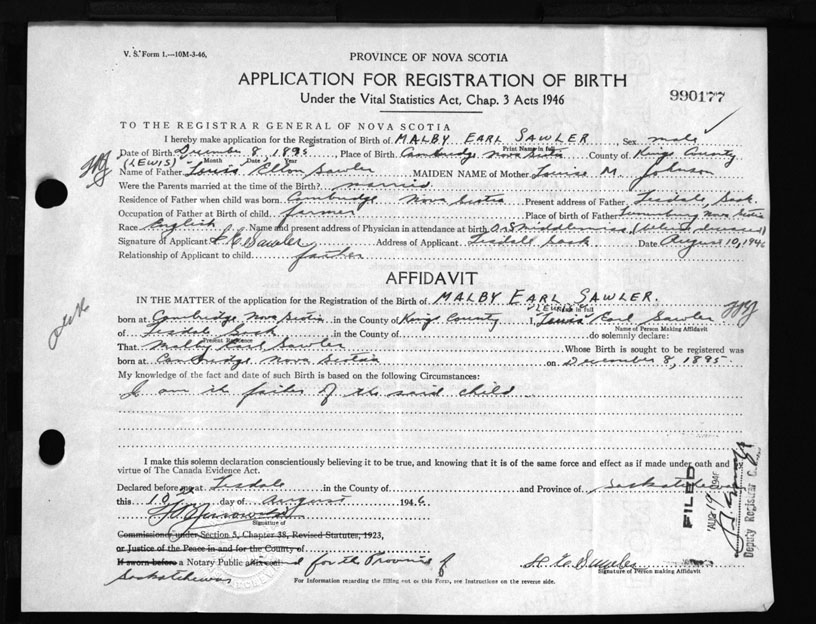 V. S. Form 1.—10M-3-46.
PROVINCE OF NOVA SCOTIA
APPLICATION FOR REGISTRATION OF BIRTH
Under the Vital Statistics Act, Chap. 3 Acts 1946
990177
TO THE REGISTRAR GENERAL OF NOVA SCOTIA
I hereby make application for the Registration of Birth of MALBY EARL SAWLER Sex male
Print Name in full
Date of Birth December 8, 1895, Place of Birth Cambridge Nova Scotia County of Kings County
Month Date Year
(LEWIS)
Name of Father Louis Sawler MAIDEN NAME of Mother Louise M. Johnson
Were the Parents married at the time of the Birth? married
Residence of Father when child was born Cambridge Nova Scotia Present address of Father Tisdale, Sask.
Occupation of Father at Birth of child farmer Place of birth of Father Lunenburg Nova Scotia
Race English Name and present address of Physician in attendance at birth
Signature of Applicant Sawler Address of Applicant Tisdale Sask Date August 10, 1946
Relationship of Applicant to child father
AFFIDAVIT
IN THE MATTER of the application for the Registration of the Birth of MALBY EARL SAWLER.
born at Cambridge Nova Scotia in the County of Kings County I, Louis Earl Sawler
Name of Person Making Affidavit
of Tisdale Sask in the County of do solemnly declare:
Present Residence
That Malby Earl Sawler Whose Birth is sought to be registered was
born at Cambridge Nova Scotia on December 8, 1895
My knowledge of the fact and date of such Birth is based on the following Circumstances:
I am the father of the said child
I make this solemn declaration conscientiously believing it to be true, and knowing that it is of the same force and effect as if made under oath and by
virtue of The Canada Evidence Act.
Declared before me at Tisdale in the County of and Province of Saskatchewan
this 10 day of August 1946
Signature of
Commissioner under Section 5, Chapter 38, Revised Statutes, 1923,
or Justice of the Peace in and for the County of
If sworn before a Notary Public affix seal and for the Province of
Saskatchewan
Sawler
Signature of Person making Affidavit
For Information regarding the filling out of this Form, see Instructions on the reverse side.
FILED
AUG 19 1946
Deputy Registrar